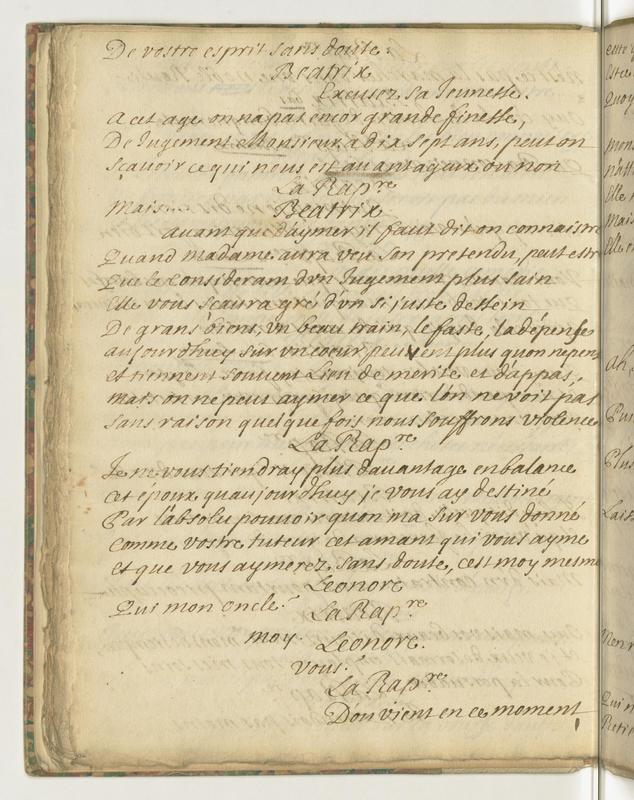 De vostre esprit sans doute.
Beatrix
Excusez sa Jeunesse.
A cet age on na pas encor grande finesse,
De Jugement Monsieur, a dix sept ans, peut on
Sçavoir ce qui nous est avantageux ou non
La Rapre
Mais
Beatrix
avant que d'aymer il faut dit on connaistre
Quand madame aura veu son pretendu, peut estre
Que le Considerant d'vn Jugement plus sain
Elle vous sçaura gré d'vn si juste dessein
De grans biens, vn beau train, le faste, la dépense
aujourdhuy sur vn coeur peuvent plus quon ne pense
et tiennent souvent Lieu de merite et d'appas,
mais on ne peut aymer ce que l'on ne voit pas
sans raison quelque fois nous souffrons violence
La Rapre
Je ne vous tiendray plus davantage en balance
Cet époux quaujourdhuy je vous ay destiné
Par l'absolu pouvoir quon ma sur vous donné
Comme vostre tuteur cet amant qui vous ayme
et que vous aymerez sans doute, c'est moy mesme
Leonore
Qui mon oncle?
La Rapre
moy.
Leonore.
vous!
La Rapre
D'ou vient en ce moment